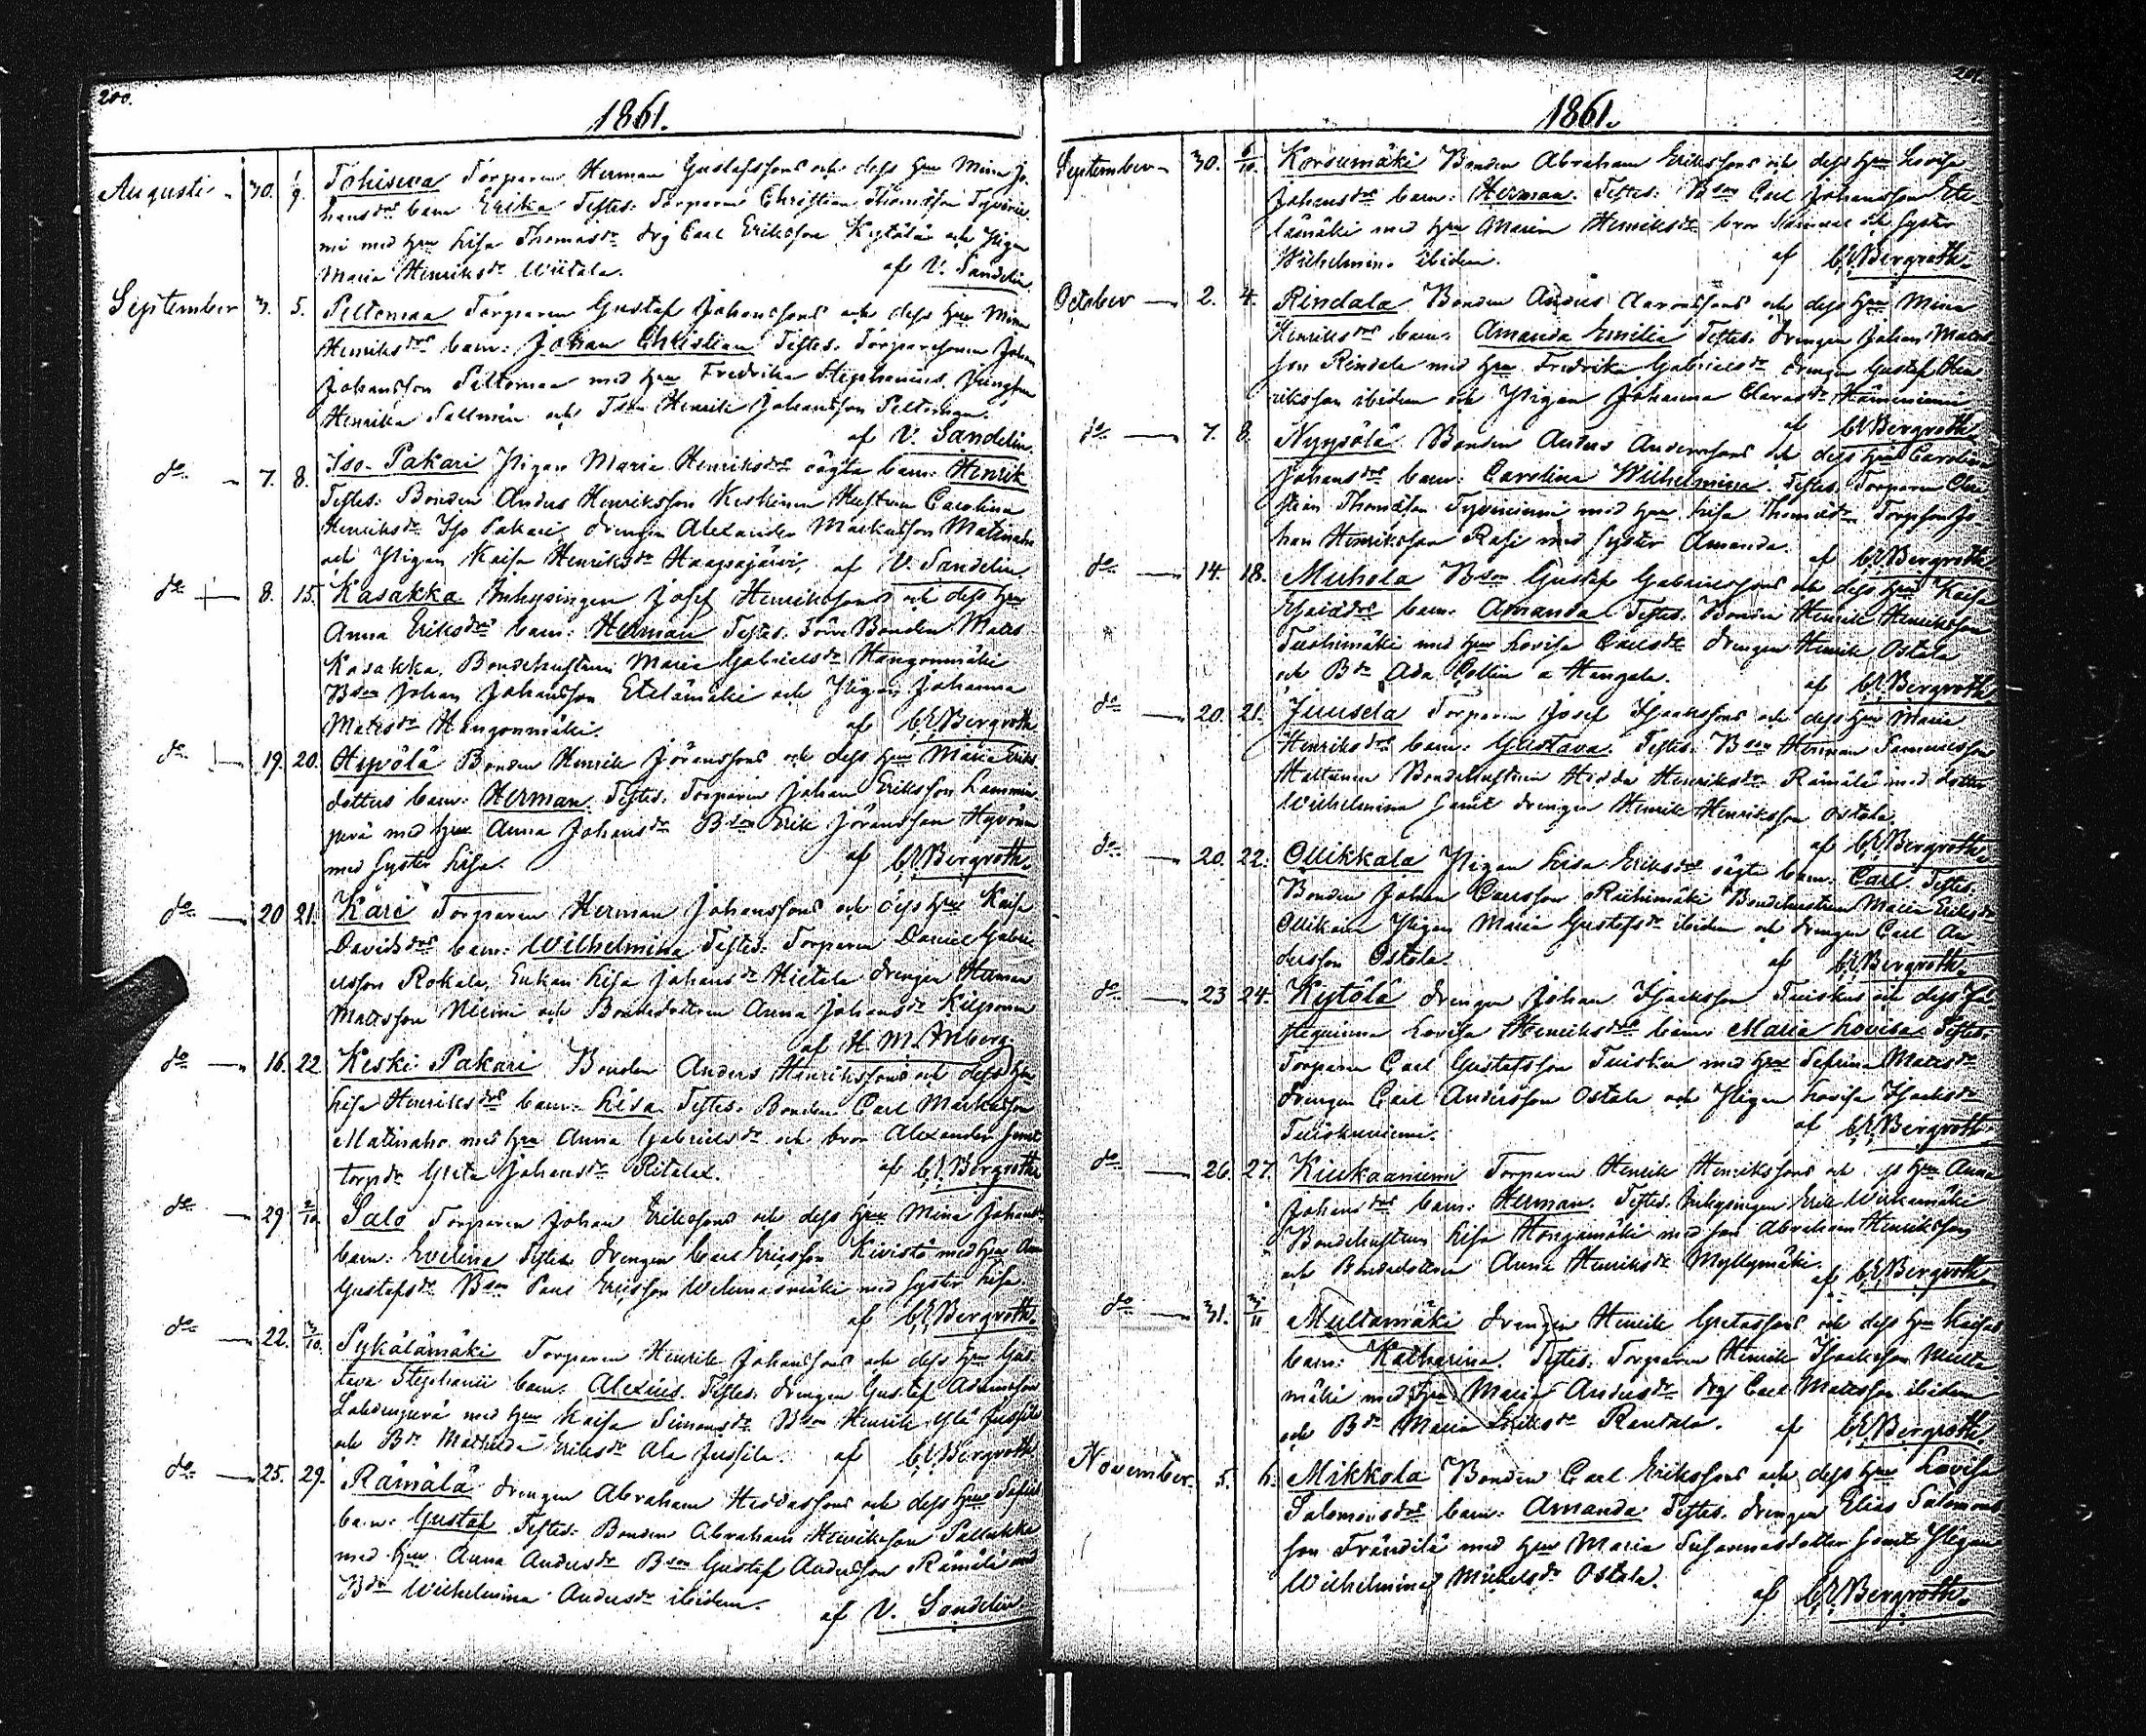 200.
1861.
Augusti 30. 1/9. Tohiseva Torparen Herman Gustafssons och dess hru Mina Jo-
hansdrs barn Erika Testes: Torparen Christian Thomasson Tyvinie-
mi med hru Lisa Thomasdr drg Carl Eriksson Kytölä och Pigan
Maria Henriksdr Wiitala. af V. Sandelin.
September 3. 5. Peltomaa Torparen Gustaf Johanssons och dess hru Mina
Henriksdrs barn: Johan Christian Testes. Torparesonen Johan
Johansson Peltomaa med hru Fredrika Stephanied. Jungfrun
Henrika Sallmén och Tson Henrik Johansson Peltomaa.
af V. Sandelin.
do 7. 8. Iso-Pakari Pigan Maria Henriksdrs oägta barn: Henrik
Testes: Bonden Anders Henriksson Keskinen Hustrun Carolina
Henriksdr Iso Pakari, drengen Alexander Markusson Matinaho
och Pigan Kaisa Henriksdr Haapajärvi, af V. Sandelin.
do 8. 15. Kasakka Inhysingen Josef Henrikssons och dess hru
Anna Eriksdrs barn: Herman Testes. Förre Bonden Matts
Kasakka. Bondehustrun Maria Gabrielsdr Hangonmäki
Bson Johan Johansson Etelämäki och Pigan Johanna
Mattsdr Hangonmäki. af C.E. Bergroth.
do 19. 20. Hyvölä Bonden Henrik Jöranssons och dess hru Maria Eriks
dotters barn: Herman. Testes. Torparen Johan Eriksson Lammin
perä med hru Anna Johansdr Bson Erik Jöransson Hyvönen
med syster Lisa. af C.E. Bergroth.
do 20 21. Kari Torparen Herman Johanssons och dess hru Kaisa
Davidsdrs barn: Wilhelmina Testes. Torparen Daniel Gabri-
elsson Rokala, Enkan Lisa Johansdr Hietala drengen Herman
Mattsson Niemi och Bondedottren Anna Johansdr Kilponen
af H. M. Arberg.
do 16. 22 Keski-Pakari Bonden Anders Henrikssons och dess hru
Lisa Henriksdrs barn: Lisa Testes. Bonden Carl Markusson
Matinaho med hru Anna Gabrielsdr och bror Alexander samt
torpdr Greta Johansdr Ritala. af C.E. Bergroth
do 29 2/10 Salo Torparen Johan Erikssons och dess hru Mina Johansdrs
barn: Evelina Testes drengen Carl Ericsson Kivistö med hru Anna
Gustafsdr Bson Paul Ericsson Welmasmäki med syster Lisa.
af C.E. Bergroth.
do 22. 3/10. Sykälämäki Torparen Henrik Johanssons och dess hru Gus-
tava Stephanii barn. Alexius. Testes: drengen Gustaf Adamsson
med hru Kaisa Simonsdr. Bson Henrik Ylä Jussila
och Bdr Mathilda Eriksdr Ala Jussila. af C.E. Bergroth
do 25. 29. Rämälä drengen Abraham Heddassons och dess hru Sofias
barn: Gustaf Testes: Bonden Abraham Henriksson Pallakka
med hru Anna Andersdr Bson Gustaf Andersson Rämälä med
Bdr Wilhelmina Andersdr ibidem.
af V. Sandelin.
201.
1861.
September 30. 6/10. Korsumäki Bonden Abraham Erikssons och dess hru Lovisa
Johansdrs barn: Herman. Testes: Bson Carl Johansson Ete-
lämäki med hru Maria Henriksdr bror Samuel och syster
Wilhelmina ibidem. af C.E. Bergroth.
October 2. 4. Rindala Bonden Anders Aaronssons och dess hru Mina
Henriksdrs barn. Amanda Emilia Testes. drengen Johan Matts-
son Rindala med hru Fredrika Gabrielsdr drengen Gustaf Hen-
riksson ibidem och Pigan Johanna Clarasdr Hämeniemi
af C.E. Bergroth
do 7. 8. Nyypölä Bonden Anders Anderssons och dess hru Carolina
Johansdrs barn: Carolina Wilhelmina. Testes. Torparen Chri-
stian Thomasson Tyviniemi med hru Lisa Thomasdr Torpson Jo-
han Henriksson Rasi med syster Amanda. af C.E. Bergroth
do 14. 18. Muhola Bson Gustaf Gabrielssons och dess hru Kaisa
barn. Amanda Testes. Bonden Henrik Henriksson
Turhimäki med hru Lovisa Carlsdr drengen Henrik Ostala
och Bdr Ada Collin a Hangala. af C.E. Bergroth
do 20. 21. Juusela Torparen Josef Isakssons och dess hru Maria
Henriksdrs barn: Gustava. Testes. Bson Herman Samuelsson
Mattinen Bondehustrun Hedda Henriksdr Rämälä med dotter
Wilhelmina samt drengen Henrik Henriksson Ostala.
af C.E. Bergroth
do 20. 22. Ollikkala Pigan Lisa Eriksdrs oägta barn. Carl. Testes.
Bonden Johan Carlsson Riihimäki Bondehustrun Maria Eriksdr
Ollikain Pigan Maria Gustafsdr ibidem och drengen Carl An-
dersson Ostola. af C.E. Bergroth.
do 23 24. Kytölä drengen Johan Isaksson Tuiskus och dess Fä-
steqvinna Lovisa Henriksdrs barn: Maria Lovisa. Testes:
Torparen Carl Gustafsson Tuisku med hru Sefrina Mattsdr
drengen Carl Andersson Ostala och Pigan Lovisa Isaksdr
Tuiskuniemi. af C.E. Bergroth.
do 26. 27. Kiukaaniemi Torparen Henrik Henrikssons och dess hru Anna
Johansdrs barn: Herman. Testes. Inhysingen Erik Wirkamäki
Bondehustrun Lisa Honganmäki med son Abraham Henriksson
och Bondedottren Anna Henriksdr Myllymäki. af C.E. Bergroth
do 31. 3/11 Multamäki drengen Henrik Gretassons och dess hru Kaisas
barn: Katharina. Testes: Torparen Henrik Isaksson Multa
mäki med hru Maria Andersdr drg Carl Mattsson ibidem
och Bdr Maria Eriksdr Rantala. af C.E. Bergroth
November. 5. 6. Mikkola Bonden Carl Erikssons och dess hru Lovisa
Salomonsdrs barn. Amanda Testes. drengen Elias Salomons
son Frändilä med hru Maria Susannasdotter samt Pigan
Wilhelmina Mickelsdr Ostala.
af C.E. Bergroth.